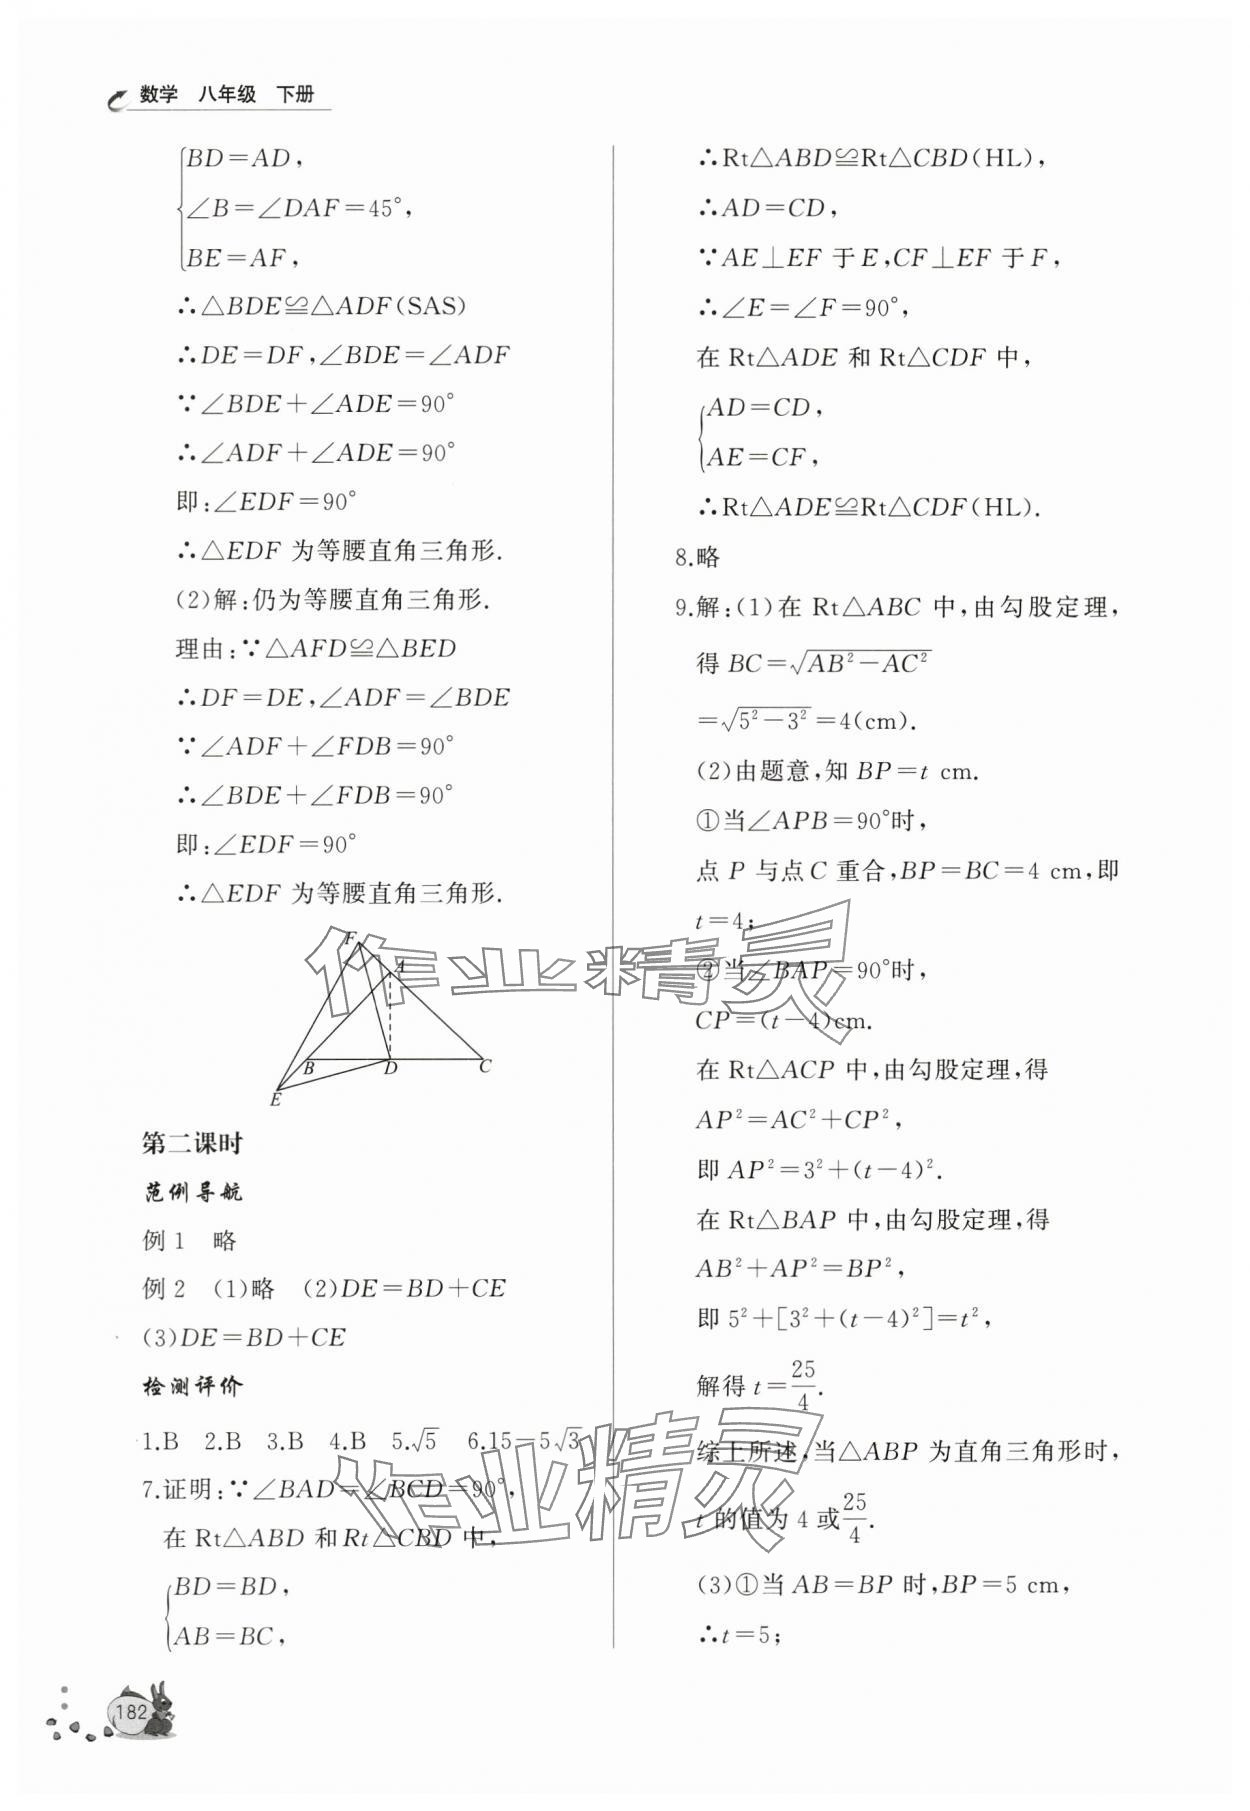 数学 八年级 下册
BD=AD,
∠B=∠DAF=45°,
BE=AF,
∴△BDE≌△ADF(SAS)
∴DE=DF,∠BDE=∠ADF
∵∠BDE+∠ADE=90°
∴∠ADF+∠ADE=90°
即:∠EDF=90°
∴△EDF 为等腰直角三角形.
(2)解:仍为等腰直角三角形.
理由:∵△AFD≌△BED
∴DF=DE,∠ADF=∠BDE
∵∠ADF+∠FDB=90°
∴∠BDE+∠FDB=90°
即:∠EDF=90°
∴△EDF 为等腰直角三角形.
F
A
B
D
C
E
第二课时
范例导航
例1 略
例2 (1)略 (2)DE=BD+CE
(3)DE=BD+CE
检测评价
1.B 2.B 3.B 4.B 5.√5 6.15-5√3
7.证明:∵∠BAD=∠BCD=90°,
在 Rt△ABD 和Rt△CBD 中,
BD=BD,
AB=BC,
∴Rt△ABD≌Rt△CBD(HL),
∴AD=CD,
∵AE⊥EF 于E,CF⊥EF 于F,
∴∠E=∠F=90°,
在 Rt△ADE 和 Rt△CDF 中,
AD=CD,
AE=CF,
∴Rt△ADE≌Rt△CDF(HL).
8.略
9.解:(1)在 Rt△ABC 中,由勾股定理,
得 BC=√(AB²-AC²)
=√(5²-3²)=4(cm).
(2)由题意,知 BP=t cm.
①当∠APB=90°时,
点 P 与点C 重合,BP=BC=4 cm,即
t=4;
②当∠BAP=90°时,
CP=(t-4)cm.
在 Rt△ACP 中,由勾股定理,得
AP²=AC²+CP²,
即 AP²=3²+(t-4)².
在 Rt△BAP 中,由勾股定理,得
AB²+AP²=BP²,
即 5²+[3²+(t-4)²]=t²,
解得 t=25/4.
综上所述,当△ABP 为直角三角形时,
t 的值为 4 或25/4.
(3)①当 AB=BP 时,BP=5 cm,
∴t=5;
182
作业精灵
作业精灵